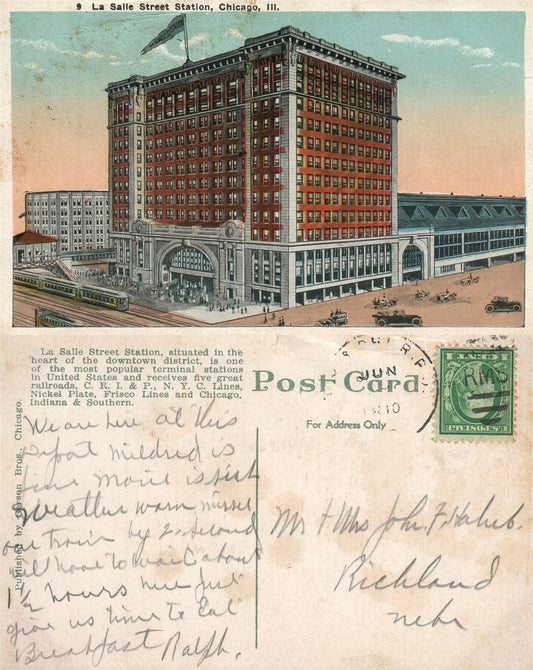 9 La Salle Street Station, Chicago, Ill.
La Salle Street Station, situated in the
heart of the downtown district, is one
of the most popular terminal stations
in United States and receives five great
railroads, C. R. I. & P., N. Y. C. Lines,
Nickel Plate, Frisco Lines and Chicago,
Indiana & Southern.
Post Card
For Address Only
JUN
RMS
Published by Gerson Bros., Chicago.
We are here at this
depot Mildred is
fine Marie is sick
Weather warm missed
our train by 2 second
will have to wait about
1 1/2 hours here Just
give us time to Eat
Breakfast Ralph.
Mr & Mrs John. F.
Richland
Nebr